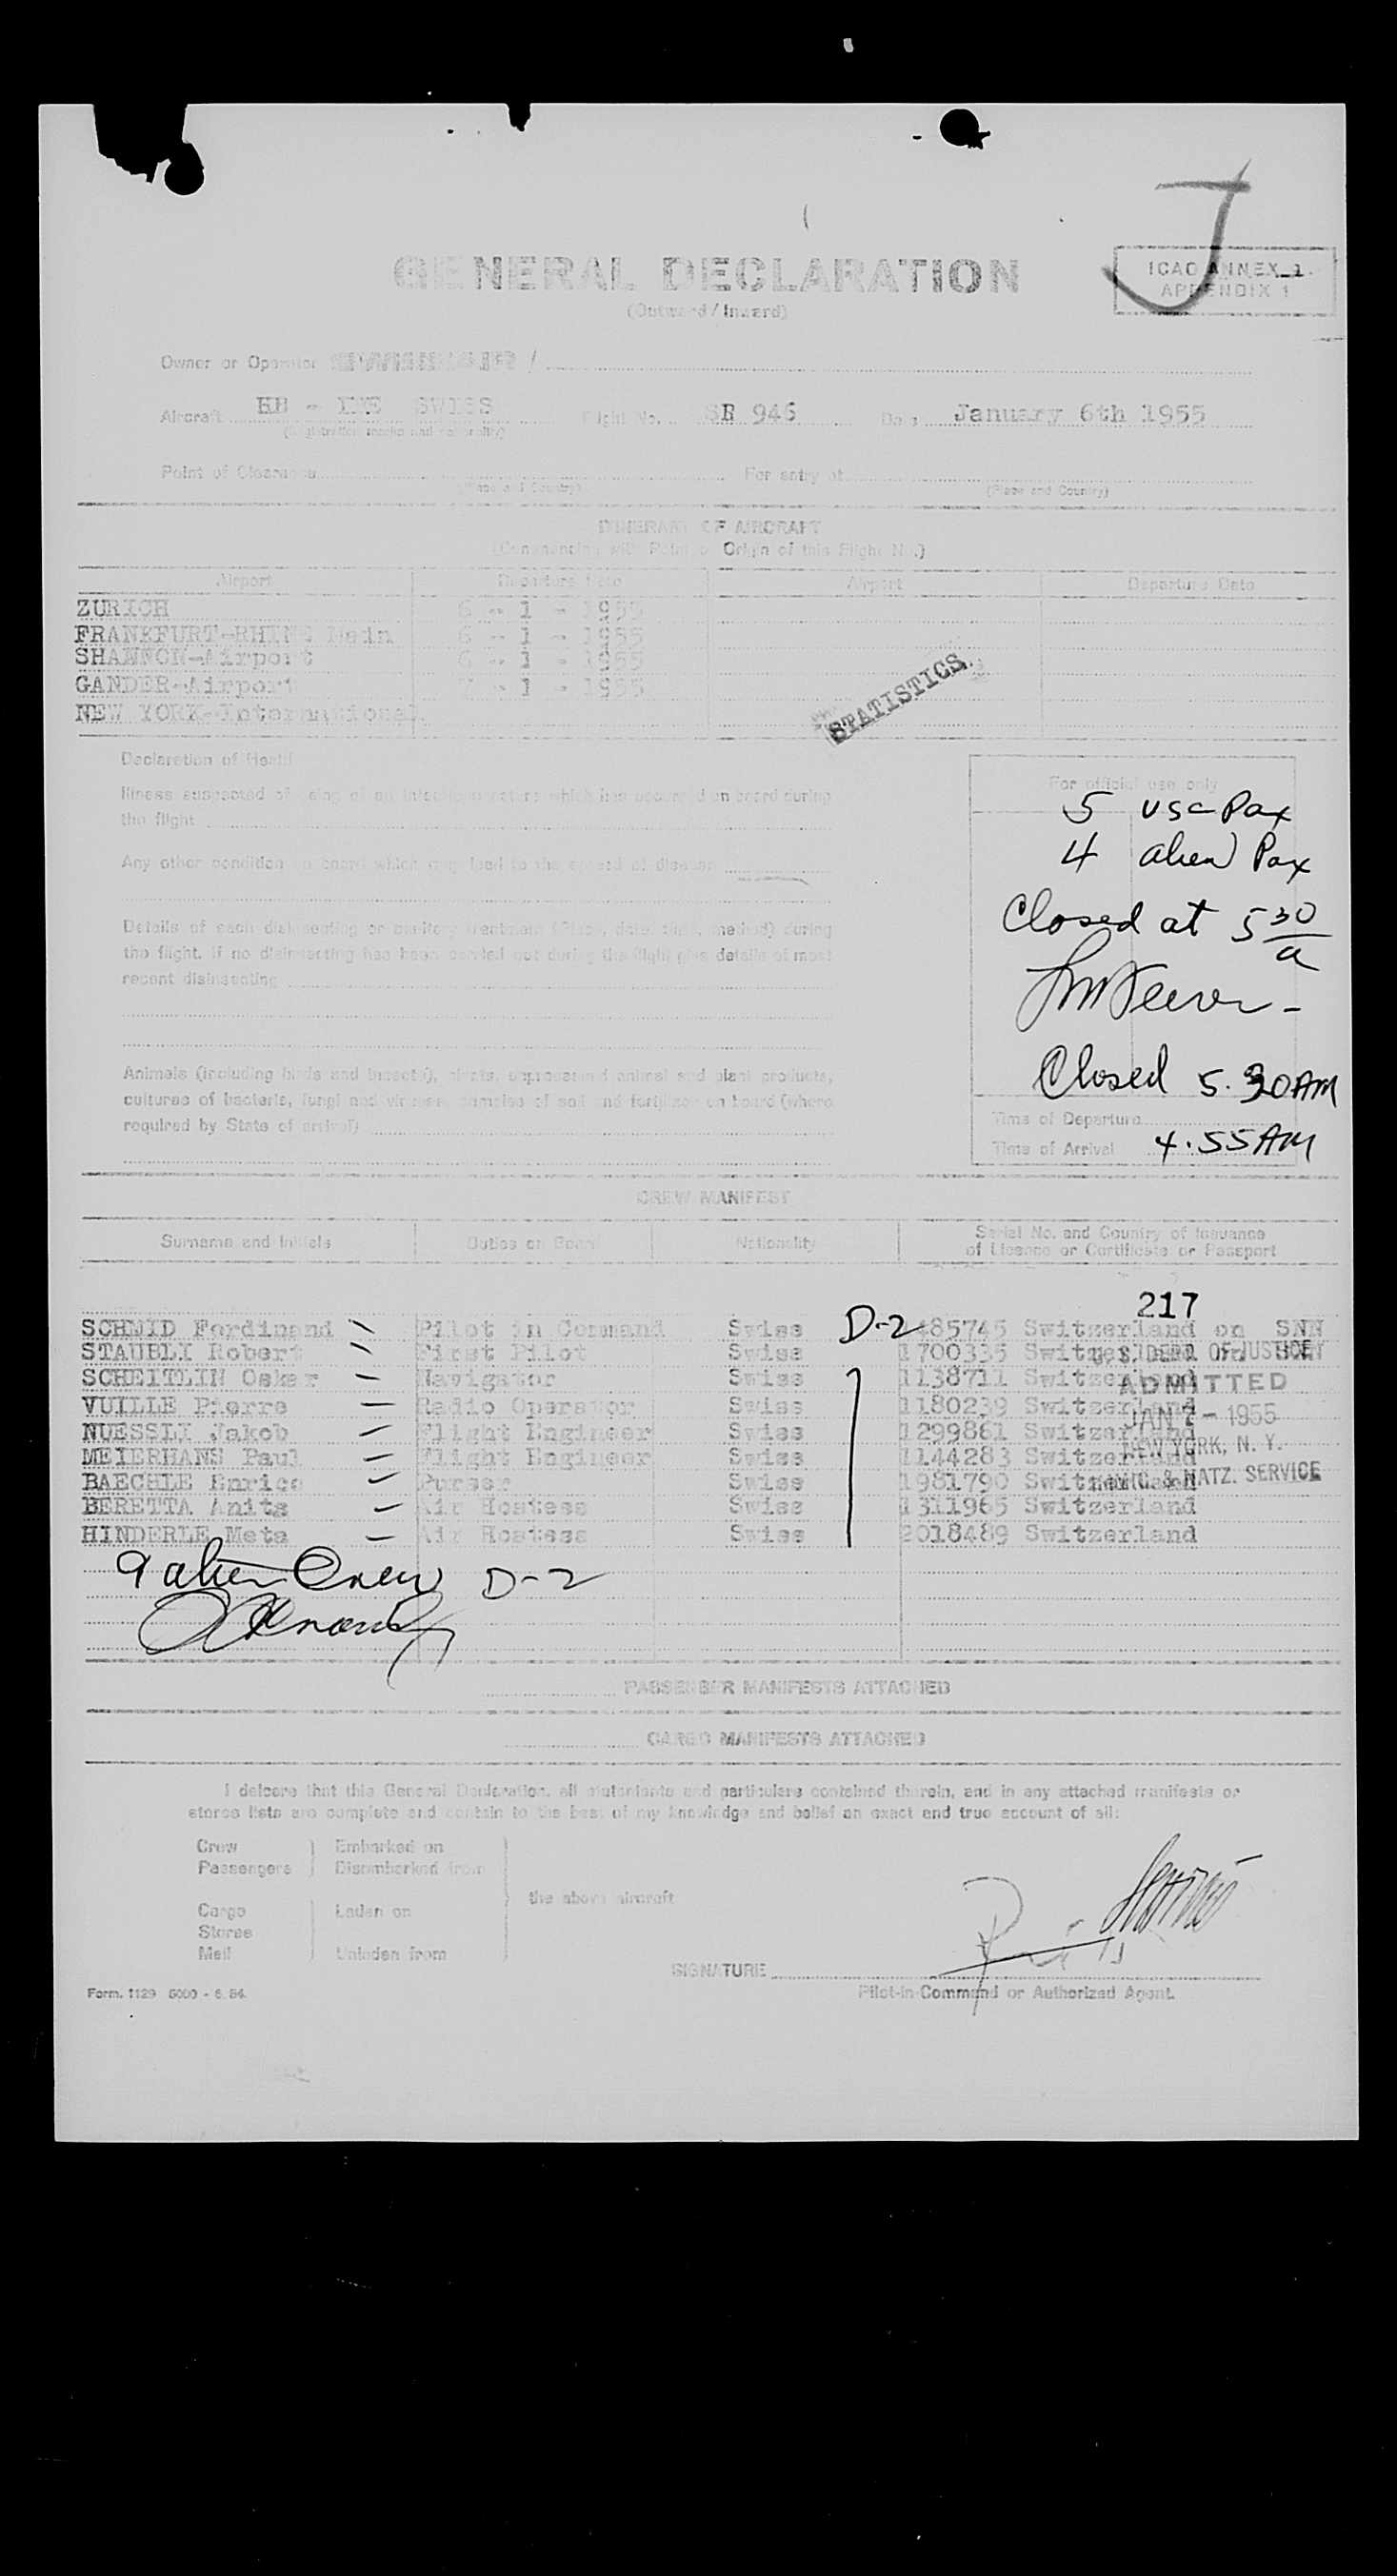 GENERAL DECLARATION
(Outward / Inward)
ICAO ANNEX 1.
APPENDIX 1
J
Owner or Operator
Aircraft SWISS Flight No. SR 946 Date January 6th 1955
(Registration marks and nationality)
Point of Clearance For entry at
(Place and Country) (Place and Country)
ITINERARY OF AIRCRAFT
(Commencing with Point of Origin of this Flight No.)
Airport Departure Date Airport Departure Date
ZURICH 6 - 1 - 1955
FRANKFURT-RHINE Main 6 - 1 - 1955
SHANNON-Airport 6 - 1 - 1955
GANDER-Airport 7 - 1 - 1955
NEW YORK-International
STATISTICS.
Declaration of Health
Illness suspected of being of an infectious nature which has occurred on board during
the flight
Any other condition on board which may lead to the spread of disease
Details of each disinsecting or sanitary treatment (Place, date, time, method) during
the flight. If no disinsecting has been carried out during the flight give details of most
recent disinsecting
Animals (including birds and insects), plants, unprocessed animal and plant products,
cultures of bacteria, fungi and viruses, samples of soil and fertilizer on board (where
required by State of arrival)
For official use only
5 usc Pax
4 alien Pax
Closed at 5 30/a
Closed 5.30AM
Time of Departure
Time of Arrival 4.55AM
CREW MANIFEST
Surname and Initials Duties on Board Nationality Serial No. and Country of Issuance
of Licence or Certificate or Passport
217
SCHMID Ferdinand Pilot in Command Swiss D-2 485745 Switzerland on SNN
STAUBLI Robert First Pilot Swiss 1700335 Switzerland
SCHEITLIN Oskar Navigator Swiss 1138711 Switzerland
VUILLE Pierre Radio Operator Swiss 1180239 Switzerland
NUESSLI Jakob Flight Engineer Swiss 1299861 Switzerland
MEIERHANS Paul Flight Engineer Swiss 1144283 Switzerland
BAECHLE Enrico Purser Swiss 1981790 Switzerland
BERETTA Anita Air Hostess Swiss 1311965 Switzerland
HINDERLE Meta Air Hostess Swiss 2018489 Switzerland
U. S. DEPT. OF JUSTICE
ADMITTED
JAN 7 - 1955
NEW YORK, N. Y.
IMMIG. & NATZ. SERVICE
9 alien Crew D-2
PASSENGER MANIFESTS ATTACHED
CARGO MANIFESTS ATTACHED
I delcare that this General Declaration, all statements and particulars contained therein, and in any attached manifests or
stores lists are complete and contain to the best of my knowledge and belief an exact and true account of all:
Crew Embarked on
Passengers Disembarked from
the above aircraft
Cargo Laden on
Stores
Mail Unladen from
SIGNATURE
Pilot-in-Command or Authorized Agent.
Form. 1129 5000 - 6. 54.